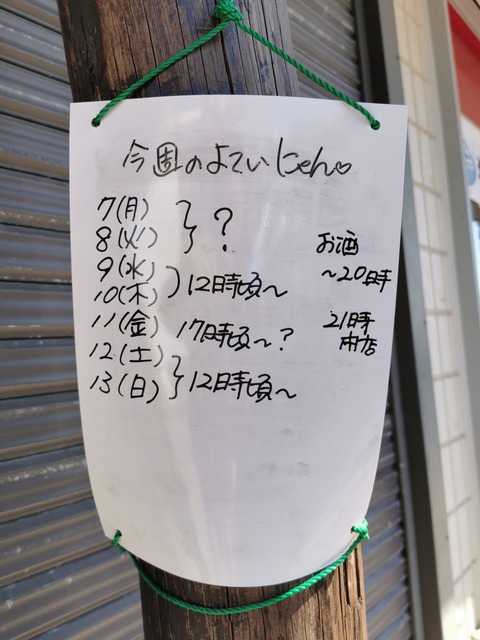 今週のよていにゃん♡
7(月)
8(火) } ?
9(水)
10(木) } 12時頃〜
11(金) 17時頃〜?
12(土)
13(日) } 12時頃〜
お酒
〜20時
21時
閉店